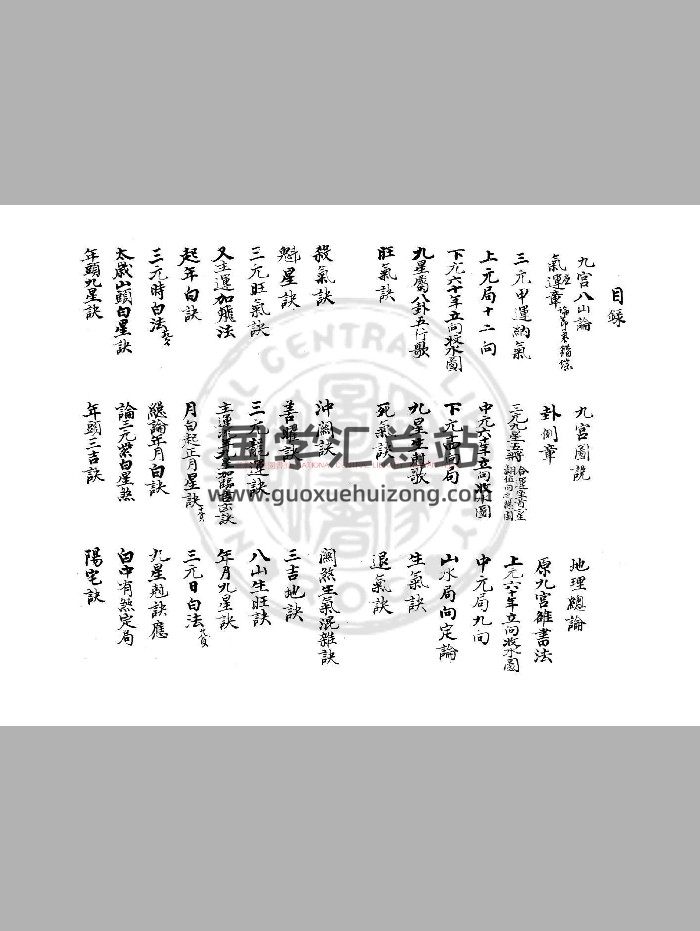 目錄
九宮八山論 九宮圖說 地理總論
氣運章 卦例章 原九宮雒書法
三元甲運納氣 三元九星五行 上元六十年立向收水圖
上元局十二向 中元六十年立向收水圖 中元局九向
下元六十年立向收水圖 下元局 山水局向定論
九星屬八卦五行歌 九星生剋歌 生氣訣
旺氣訣 死氣訣 退氣訣
殺氣訣 沖關訣 關煞生氣混雜訣
魁星訣 善曜訣 三吉地訣
三元旺氣訣 三元龍運訣 八山生旺訣
又主運加飛法 主運 年月九星訣
起年白訣 月白起正月星訣 三元日白法
三元時白法 總論年月白訣 九星剋訣應
太歲山頭白星訣 論三元紫白星煞 白中有煞定局
年頭九星訣 年頭三吉訣 陽宅訣
国学汇总站
www.guoxuehuizong.com